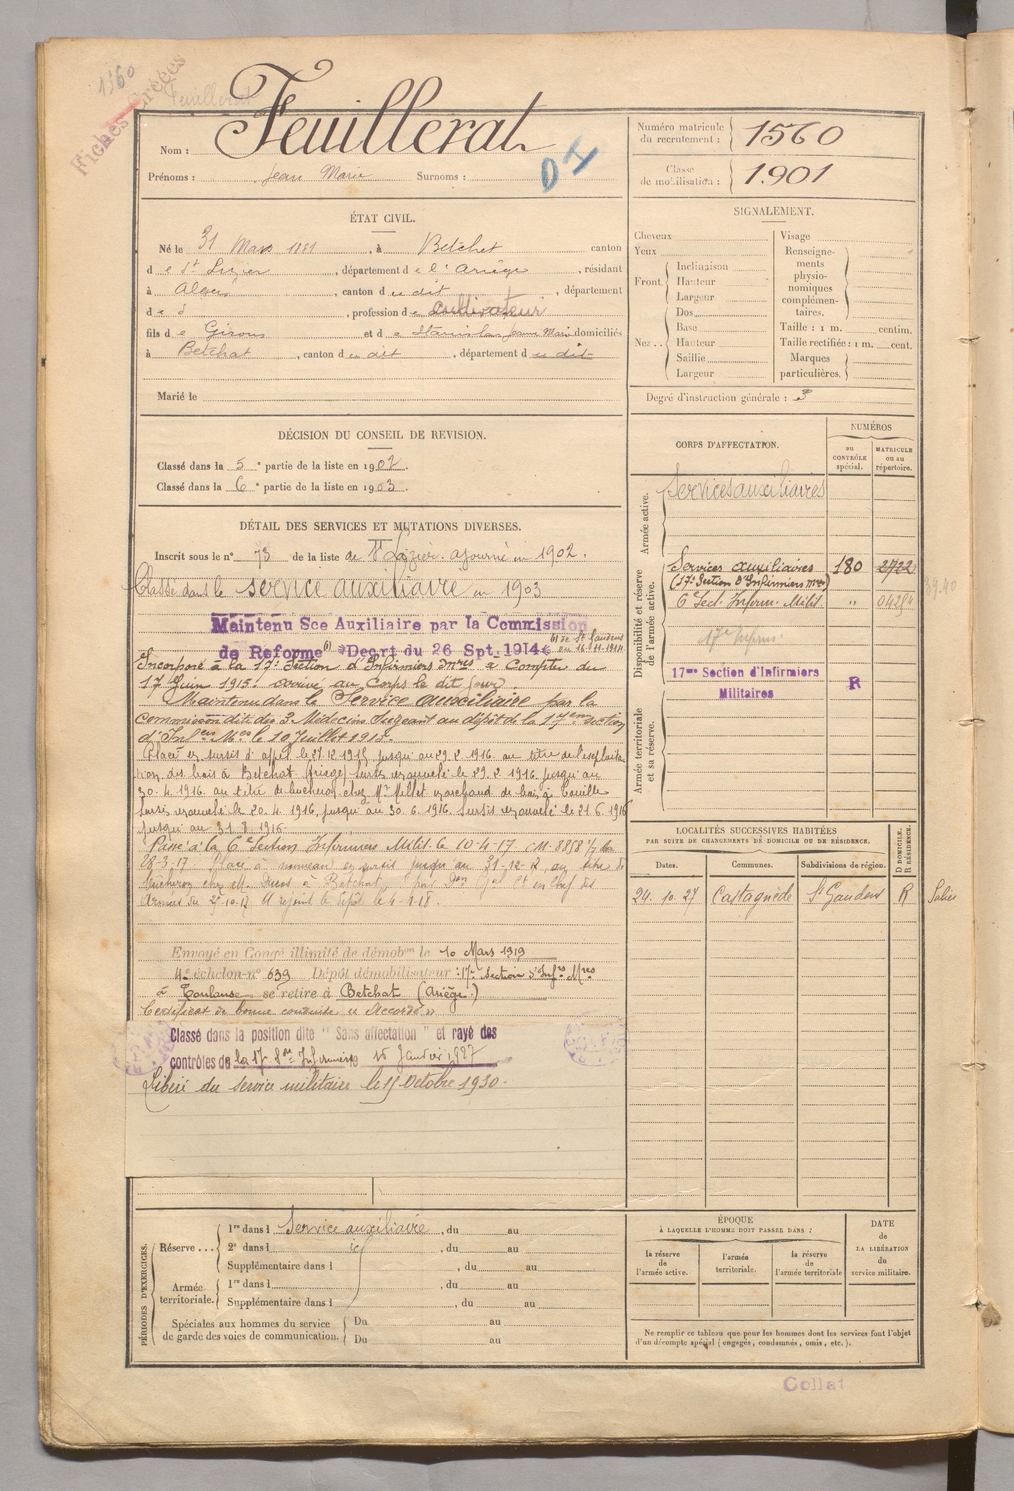 1560
Fiches Créées
Feuillerat
Nom : Feuillerat
Prénoms : Jean Marie Surnoms :
Numéro matricule du recrutement : 1560
Classe de mobilisation : 1901
ÉTAT CIVIL.
Né le 31 Mars 1881, à Betchat canton
de St Lizier, département de l'Ariège, résidant
à Alger, canton du dit, département
d , profession de cultivateur
fils de Girons et de domiciliés
à Betchat, canton du dit, département du dit
Marié le
SIGNALEMENT.
Cheveux
Yeux
Front. Inclinaison
Hauteur
Largeur
Nez. . Dos
Base
Hauteur
Saillie
Largeur
Visage
Renseignements physionomiques complémentaires.
Taille : 1 m. centim.
Taille rectifiée : 1 m. cent.
Marques particulières.
Degré d'instruction générale : 3
DÉCISION DU CONSEIL DE REVISION.
Classé dans la 5e partie de la liste en 1902.
Classé dans la 6e partie de la liste en 1903.
CORPS D'AFFECTATION.
NUMÉROS
au CONTRÔLE spécial.
MATRICULE ou au répertoire.
Armée active.
Services auxiliaires
Disponibilité et réserve de l'armée active.
Services auxiliaires 180 2722
(17e Section d'Infirmiers Mres)
6e Sect. Infirm. Milit. "
17e Infirm.
17me Section d'Infirmiers
Militaires R
Armée territoriale et sa réserve.
DÉTAIL DES SERVICES ET MUTATIONS DIVERSES.
Inscrit sous le n° 73 de la liste de St Lizier. ajourné en 1902.
Classé dans le service auxiliaire en 1903
Maintenu Sce Auxiliaire par la Commission
de Réforme Décrt du 26 Spt. 1914
Incorporé à la 17e Section d'Infirmiers Mres à Compter du
17 Juin 1915. arrivé au Corps le dit jour
Maintenu dans le Service auxiliaire par la
Commission dite des 3 Médecins Siégeant au dépôt de la 17eme Section
d'Infers Mres le 10 Juillet 1915.
Placé en sursis d'appel le 27.12.1915 jusqu'au 29.2.1916. au titre de l'exploita
tion des bois à Betchat (Ariège) sursis renouvelé le 29.2.1916. jusqu'au
30.4.1916. au titre de bucheron chez Mr Millet marchand de bois à
sursis renouvelé le 20.4.1916. jusqu'au 30.6.1916. Sursis renouvelé le 21.6.1916
jusqu'au 31.8.1916.
Passé à la 6e Section Infirmiers Milit. le 10-4-17
28-3-17 Placé à nouveau en sursis jusqu'au 31-12-17 au titre de
bûcheron chez à Betchat en Chef des
Armées du 17 A rejoint le dépôt le 4-1-18.
Envoyé en Congé illimité de démobon le 10 Mars 1919
4e échelon n° 639 Dépôt démobilisateur : 17e Section d'Infrs Mres
à Toulouse se retire à Betchat (Ariège)
Certificat de bonne conduite "Accordé"
Classé dans la position dite "Sans affectation" et rayé des
contrôles de la 17 Son Infirmiers Janvier 1927
Libéré du service militaire le 15 Octobre 1930.
LOCALITÉS SUCCESSIVES HABITÉES
PAR SUITE DE CHANGEMENTS DE DOMICILE OU DE RÉSIDENCE.
Dates. Communes. Subdivisions de région. D DOMICILE. R RÉSIDENCE.
24. 10. 27 Castagnède St Gaudens R Salies
PÉRIODES D'EXERCICES.
Réserve . . . 1re dans l Service auxiliaire, du au
2e dans l , du au
Supplémentaire dans l , du au
Armée territoriale. 1re dans l , du au
Supplémentaire dans l , du au
Spéciales aux hommes du service de garde des voies de communication. Du au
Du au
ÉPOQUE
À LAQUELLE L'HOMME DOIT PASSER DANS :
la réserve de l'armée active.
l'armée territoriale.
la réserve de l'armée territoriale
DATE de LA LIBÉRATION du service militaire.
Ne remplir ce tableau que pour les hommes dont les services font l'objet
d'un décompte spécial (engagés, condamnés, omis, etc.).
Collat